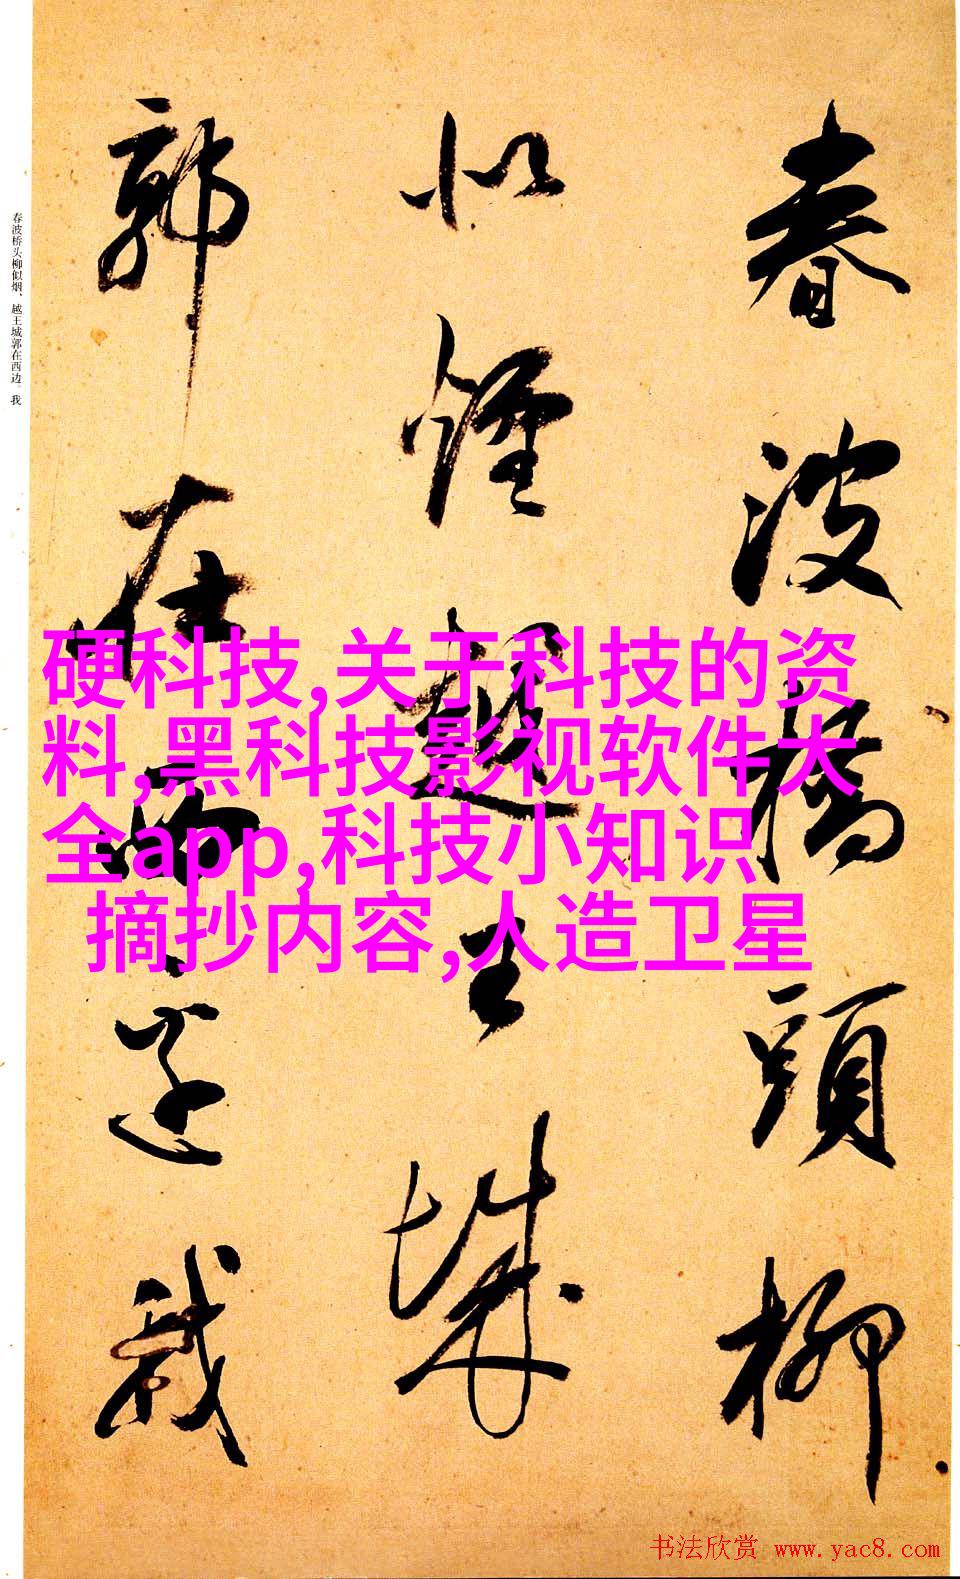 春波橋頭柳
似煙越王城
郭在西邊我
春波桥头柳似烟、越王城郭在西边。我
硬科技,关于科技的资
料,黑科技影视软件大
全app,科技小知识
摘抄内容,人造卫星
书法欣赏 www.yac8.com